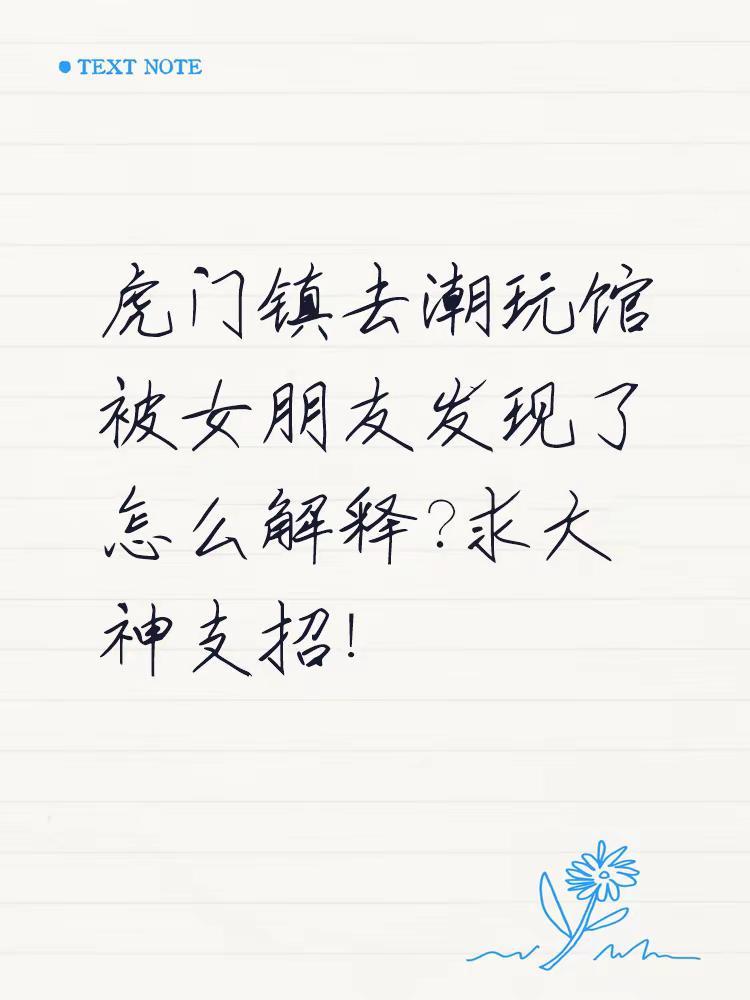 TEXT NOTE
虎门镇去潮玩馆
被女朋友发现了
怎么解释?求大
神支招!